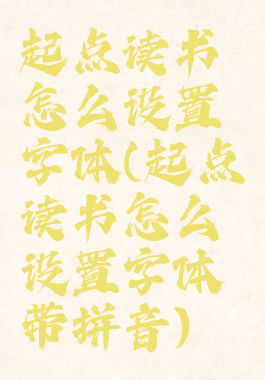 起点读书
怎么设置
字体(起点
读书怎么
设置字体
带拼音)